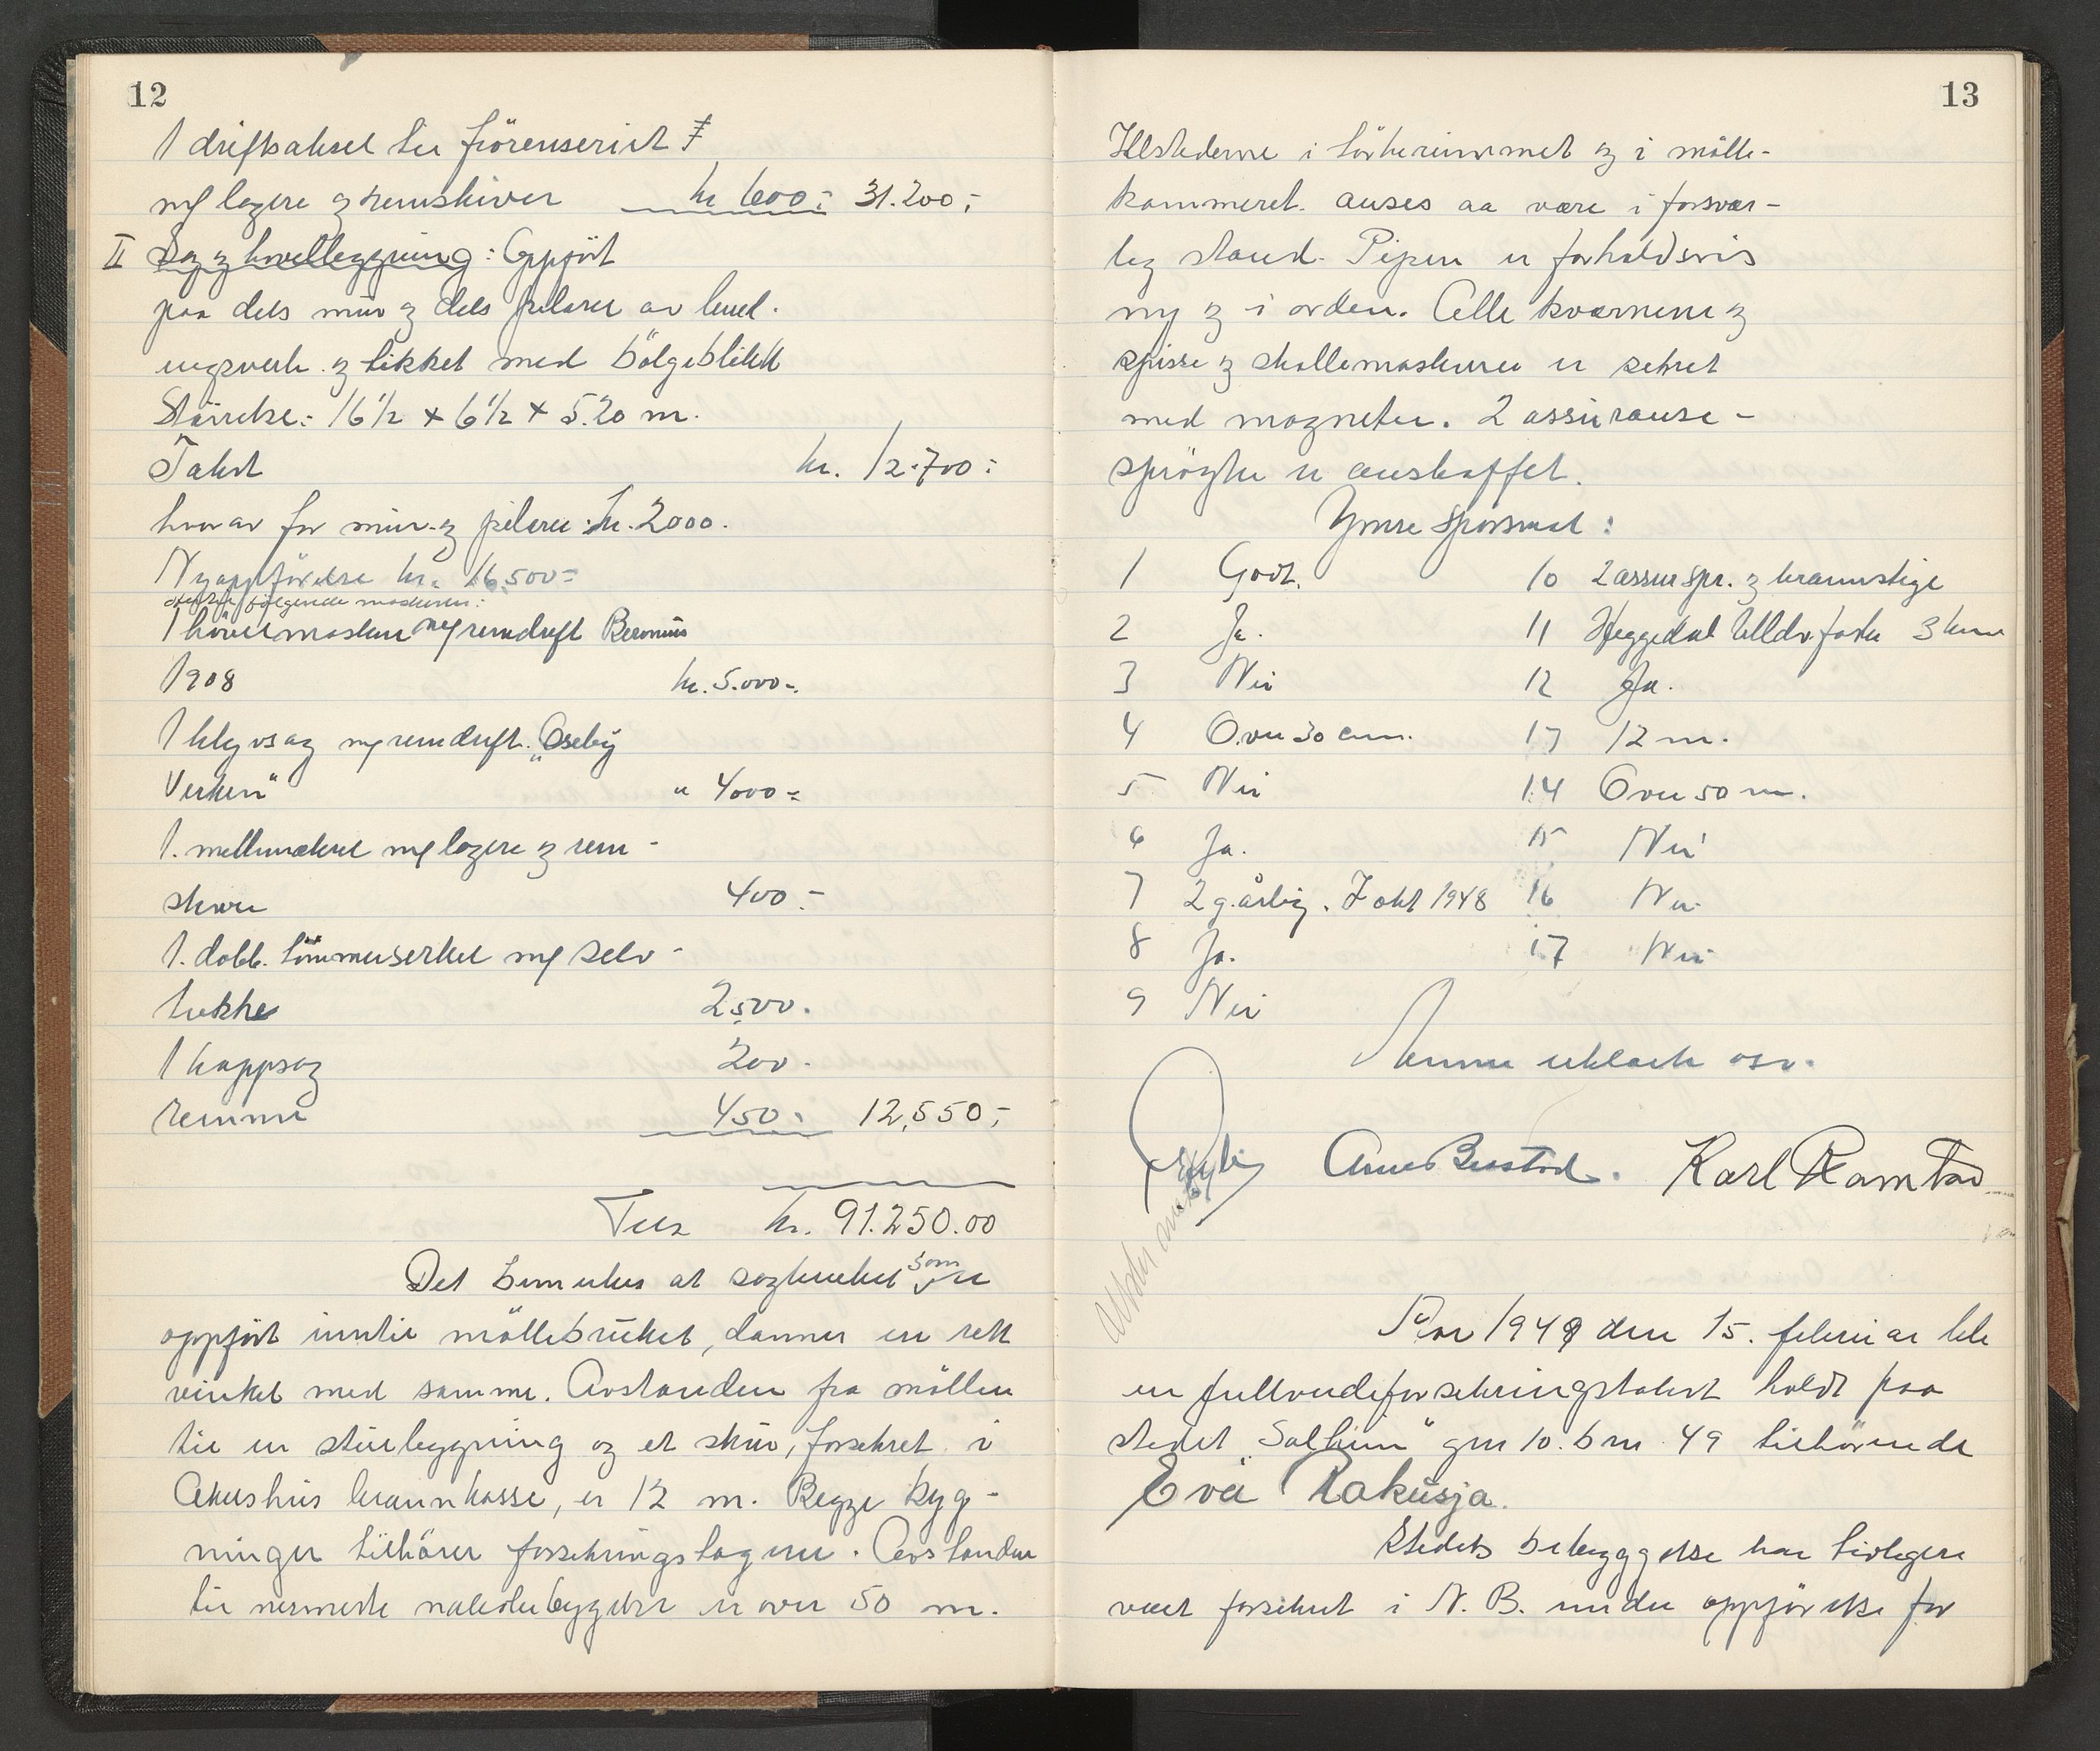 12
1 driftsaksel til frörenseriet
m/ lagere og remskiver kr 600:- 31.200,-
II Sag og hövelbygning: Oppfört
paa dels mur og dels pilarer av bind-
ingsverk og tekket med bölgeblikk
Störrelse: 16 1/2 x 6 1/2 x 5.20 m.
Takst kr. 12.700:-
hvorav for mur og pilarer: kr. 2000.
Nyoppförelse kr. 16,500=
følgende maskiner:
1 hövelmaskin m/ remdrift
1908 kr. 5.000-.
1 klyvsag m/ remdrift. "Oseby
Verken" " 4000=
1. mellemaksel m/ lagere og rem-
skive 400:-
1. dobb. tömmersirkel m/ selv-
trekke 2500.
1 kappsag 200.
remmer 450. 12,550,-
Tils kr. 91.250.00
Det bemerkes at sagbruket som er
oppfört inntil möllebruket, danner en rett
vinkel med samme. Avstanden fra möllen
til en stuebygning og et skur, forsikret i
Akershus brannkasse, er 12 m. Begge byg-
ninger tilhörer forsikringstageren. Avstanden
til nermeste nabobebyggelse er over 50 m.
13
Ildstederne i törkerummet og i mölle-
kammeret anses aa være i forsvar-
lig stand. Pipen er forholdsvis
ny og i orden. Alle kvernene og
spisse og skallemaskinen er sikret
med magneter. 2 assuranse-
spröyter er anskaffet.
Ymse spörsmal:
1 Godt. 10 2 assur spr. og brannstige
2 Ja. 11 Heggedal 3 km
3 Nei 12 Ja.
4 Over 30 cm. 13 12 m.
5 Nei 14 Over 50 m.
6 Ja. 15 Nei
7 2 g. årlig. I okt 1948 16 Nei
8 Ja. 17 Nei
9 Nei
Denne utklark osv.
Arne Bustad. Karl Ramstad
Aar 1949 den 15. februar ble
en fullverdiforsikringstakst holdt paa
stedet "Solheim" gnr 10. bnr 49 tilhörende
Eva Rakusja.
Stedets bebyggelse har tidligere
vært forsikret i N. B. under oppförelse for